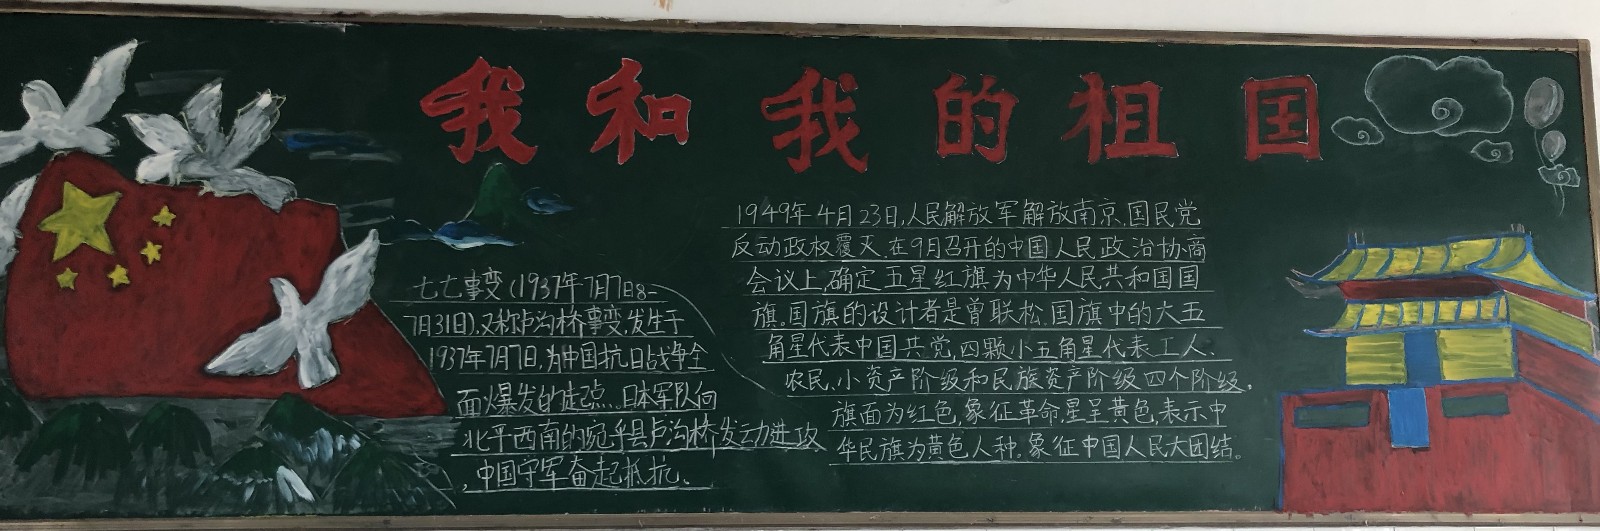 我和我的祖国
七七事变(1937年7月7日8-
7月31日),又称卢沟桥事变,发生于
1937年7月7日,为中国抗日战争全
面爆发的起点.,日本军队向
北平西南的宛平县卢沟桥发动进攻
,中国守军奋起抵抗、
1949年4月23日,人民解放军解放南京,国民党
反动政权覆灭.在9月召开的中国人民政治协商
会议上,确定五星红旗为中华人民共和国国
旗.国旗的设计者是曾联松.国旗中的大五
角星代表中国共党,四颗小五角星代表工人、
农民、小资产阶级和民族资产阶级四个阶级,
旗面为红色,象征革命,星呈黄色,表示中
华民族为黄色人种,象征中国人民大团结。